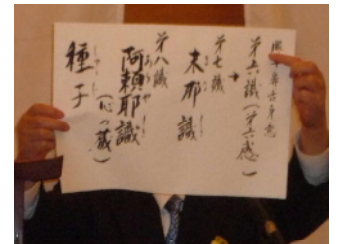 第六識(第六感)
第七識
末那識
第八識
阿頼耶識
(心の蔵)
種子